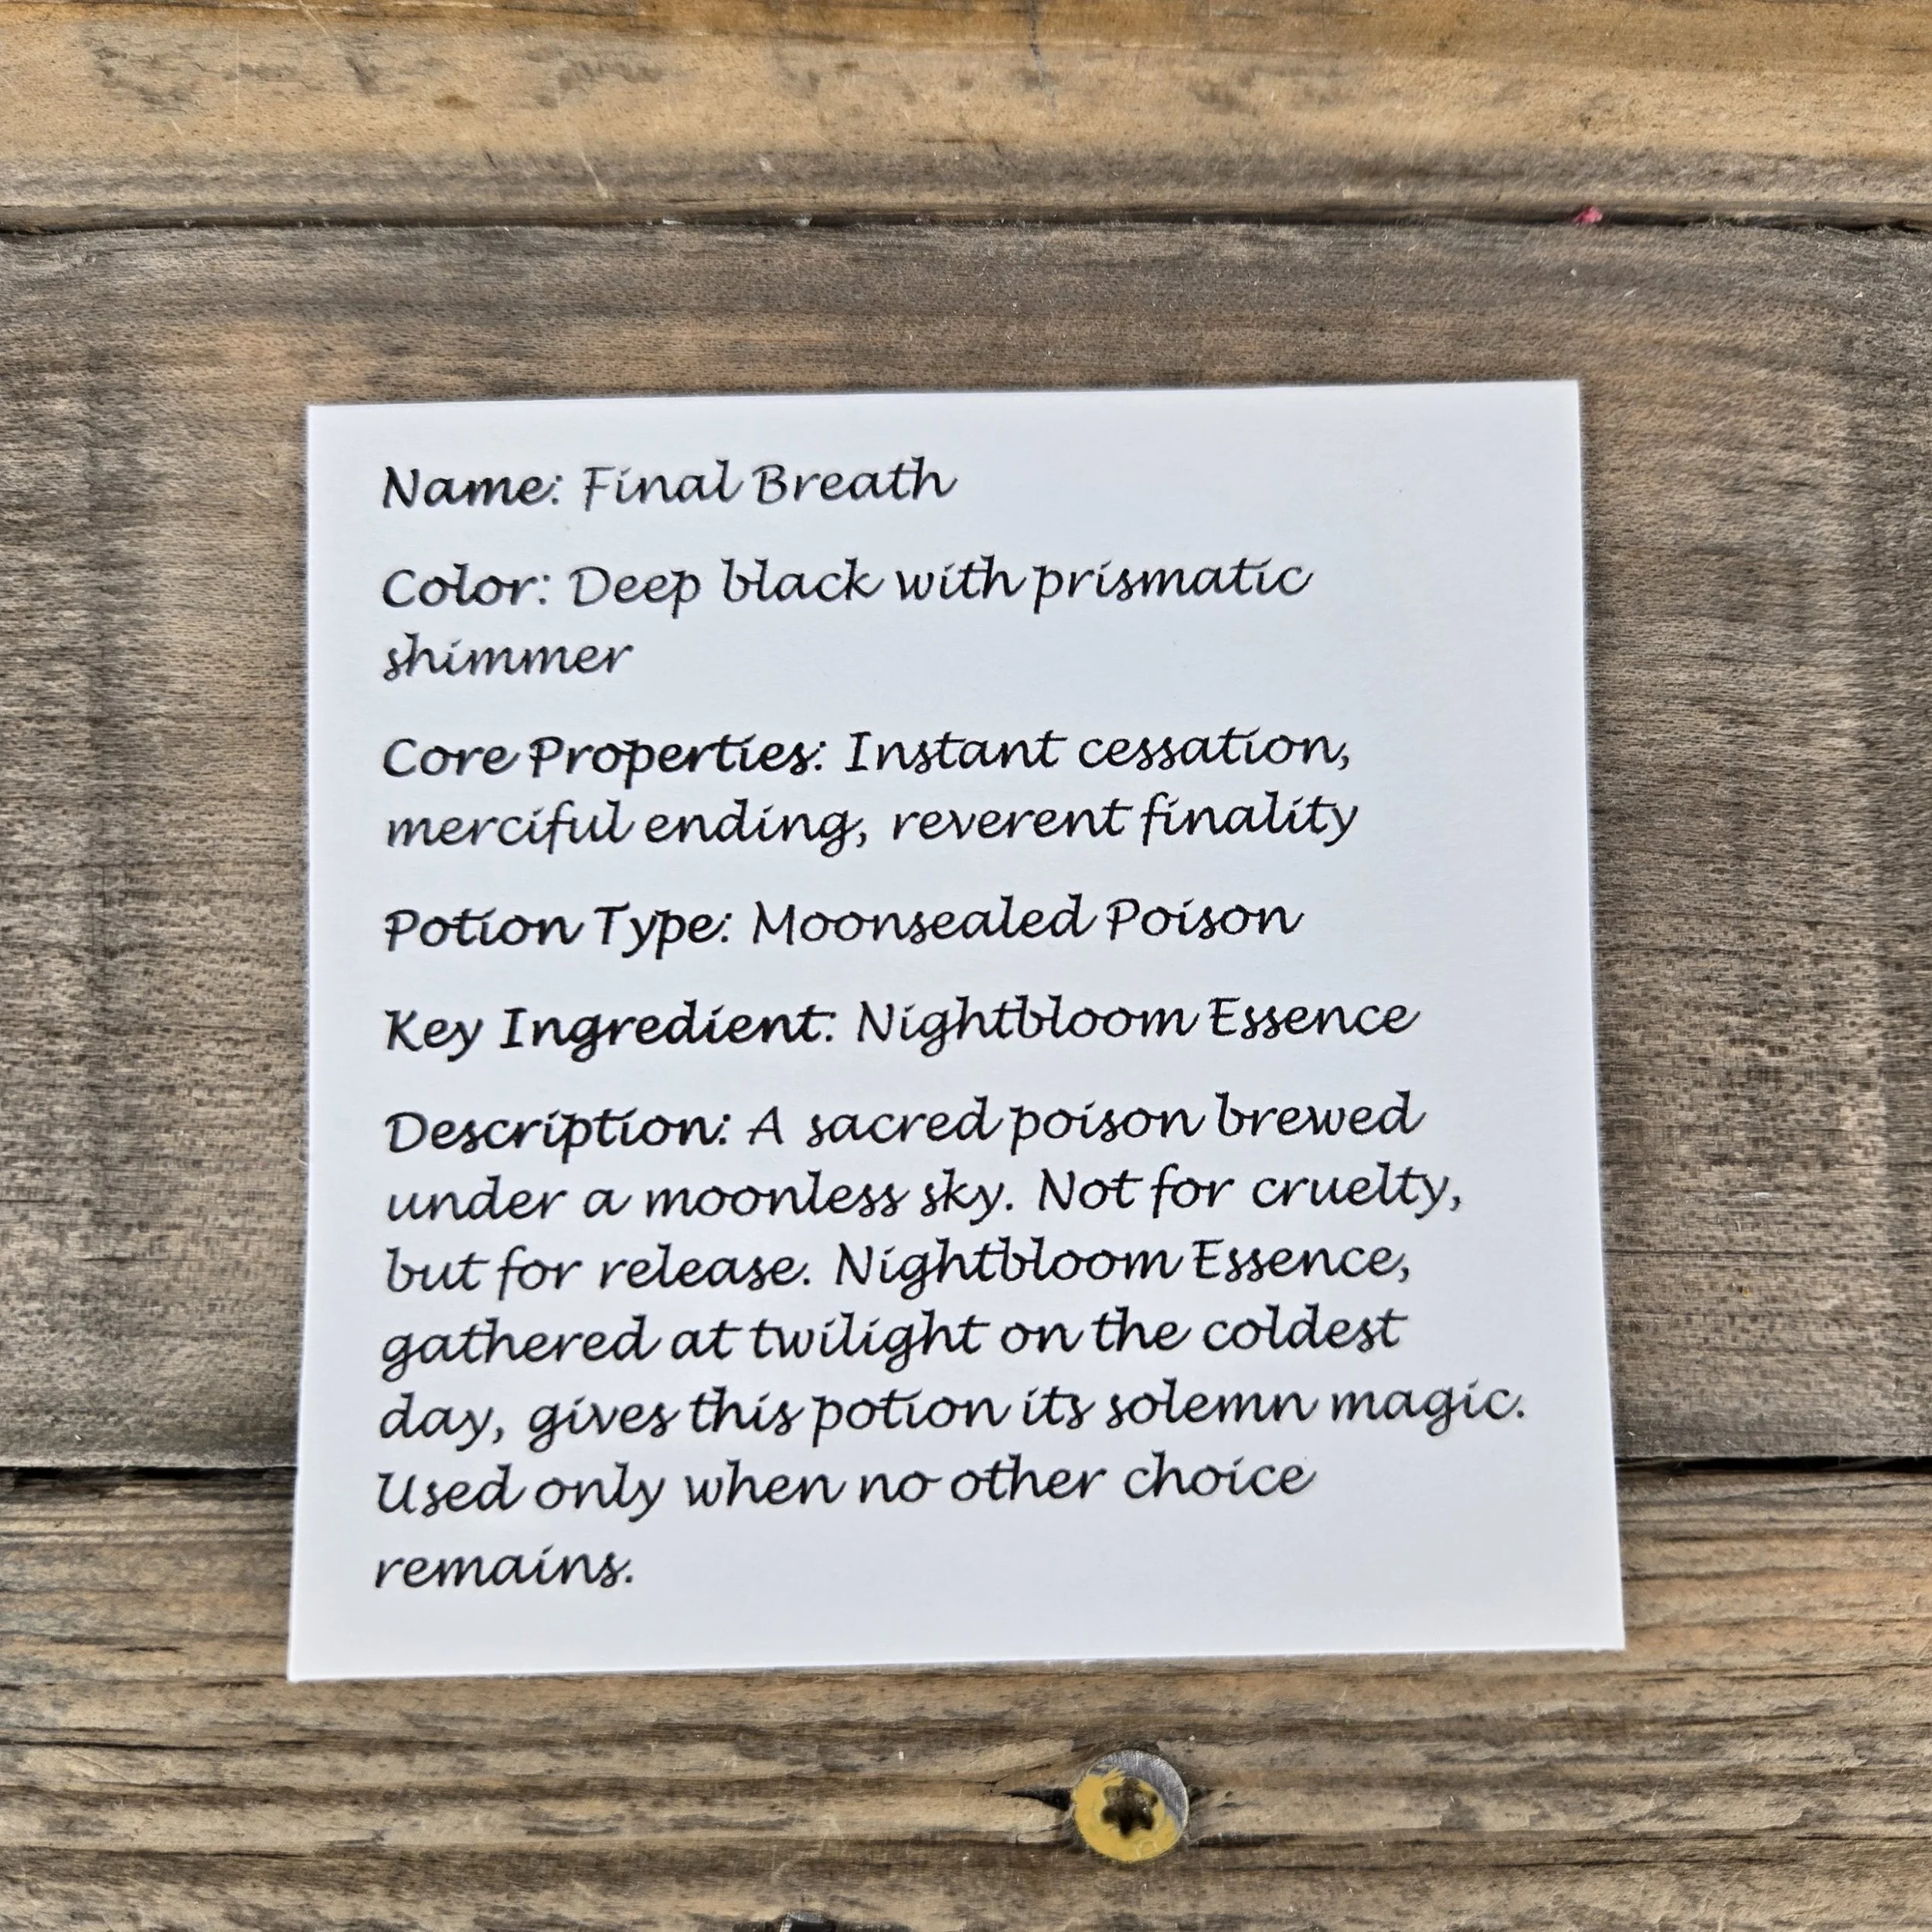 Name: Final Breath
Color: Deep black with prismatic
shimmer
Core Properties: Instant cessation,
merciful ending, reverent finality
Potion Type: Moonsealed Poison
Key Ingredient: Nightbloom Essence
Description: A sacred poison brewed
under a moonless sky. Not for cruelty,
but for release. Nightbloom Essence,
gathered at twilight on the coldest
day, gives this potion its solemn magic.
Used only when no other choice
remains.